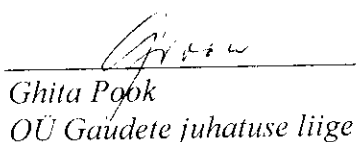 Ghita Pook
OÜ Gaudete juhatuse liige